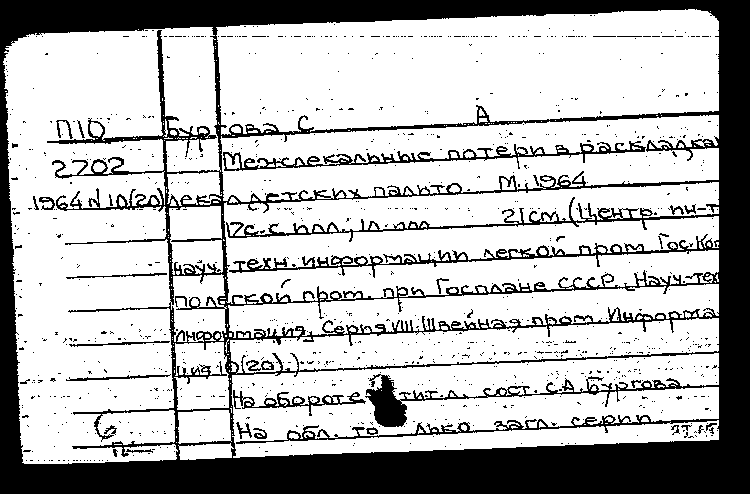 П10 Бургова, С А
2702 Межлекальные потери в раскладка
1964 N 10(20) лекал детских пальто. М., 1964
17с. с илл.; 1л. илл 21см. (Центр. ин-т
науч. техн. информации легкой пром. Гос. Ком
по легкой пром. при Госплане СССР. Науч.-тех
информация, Серия VIII. Швейная пром. Информа
ция 10(20).)
На обороте тит. л. сост. С.А. Бургова.
6 На обл. то лько загл. серии
П